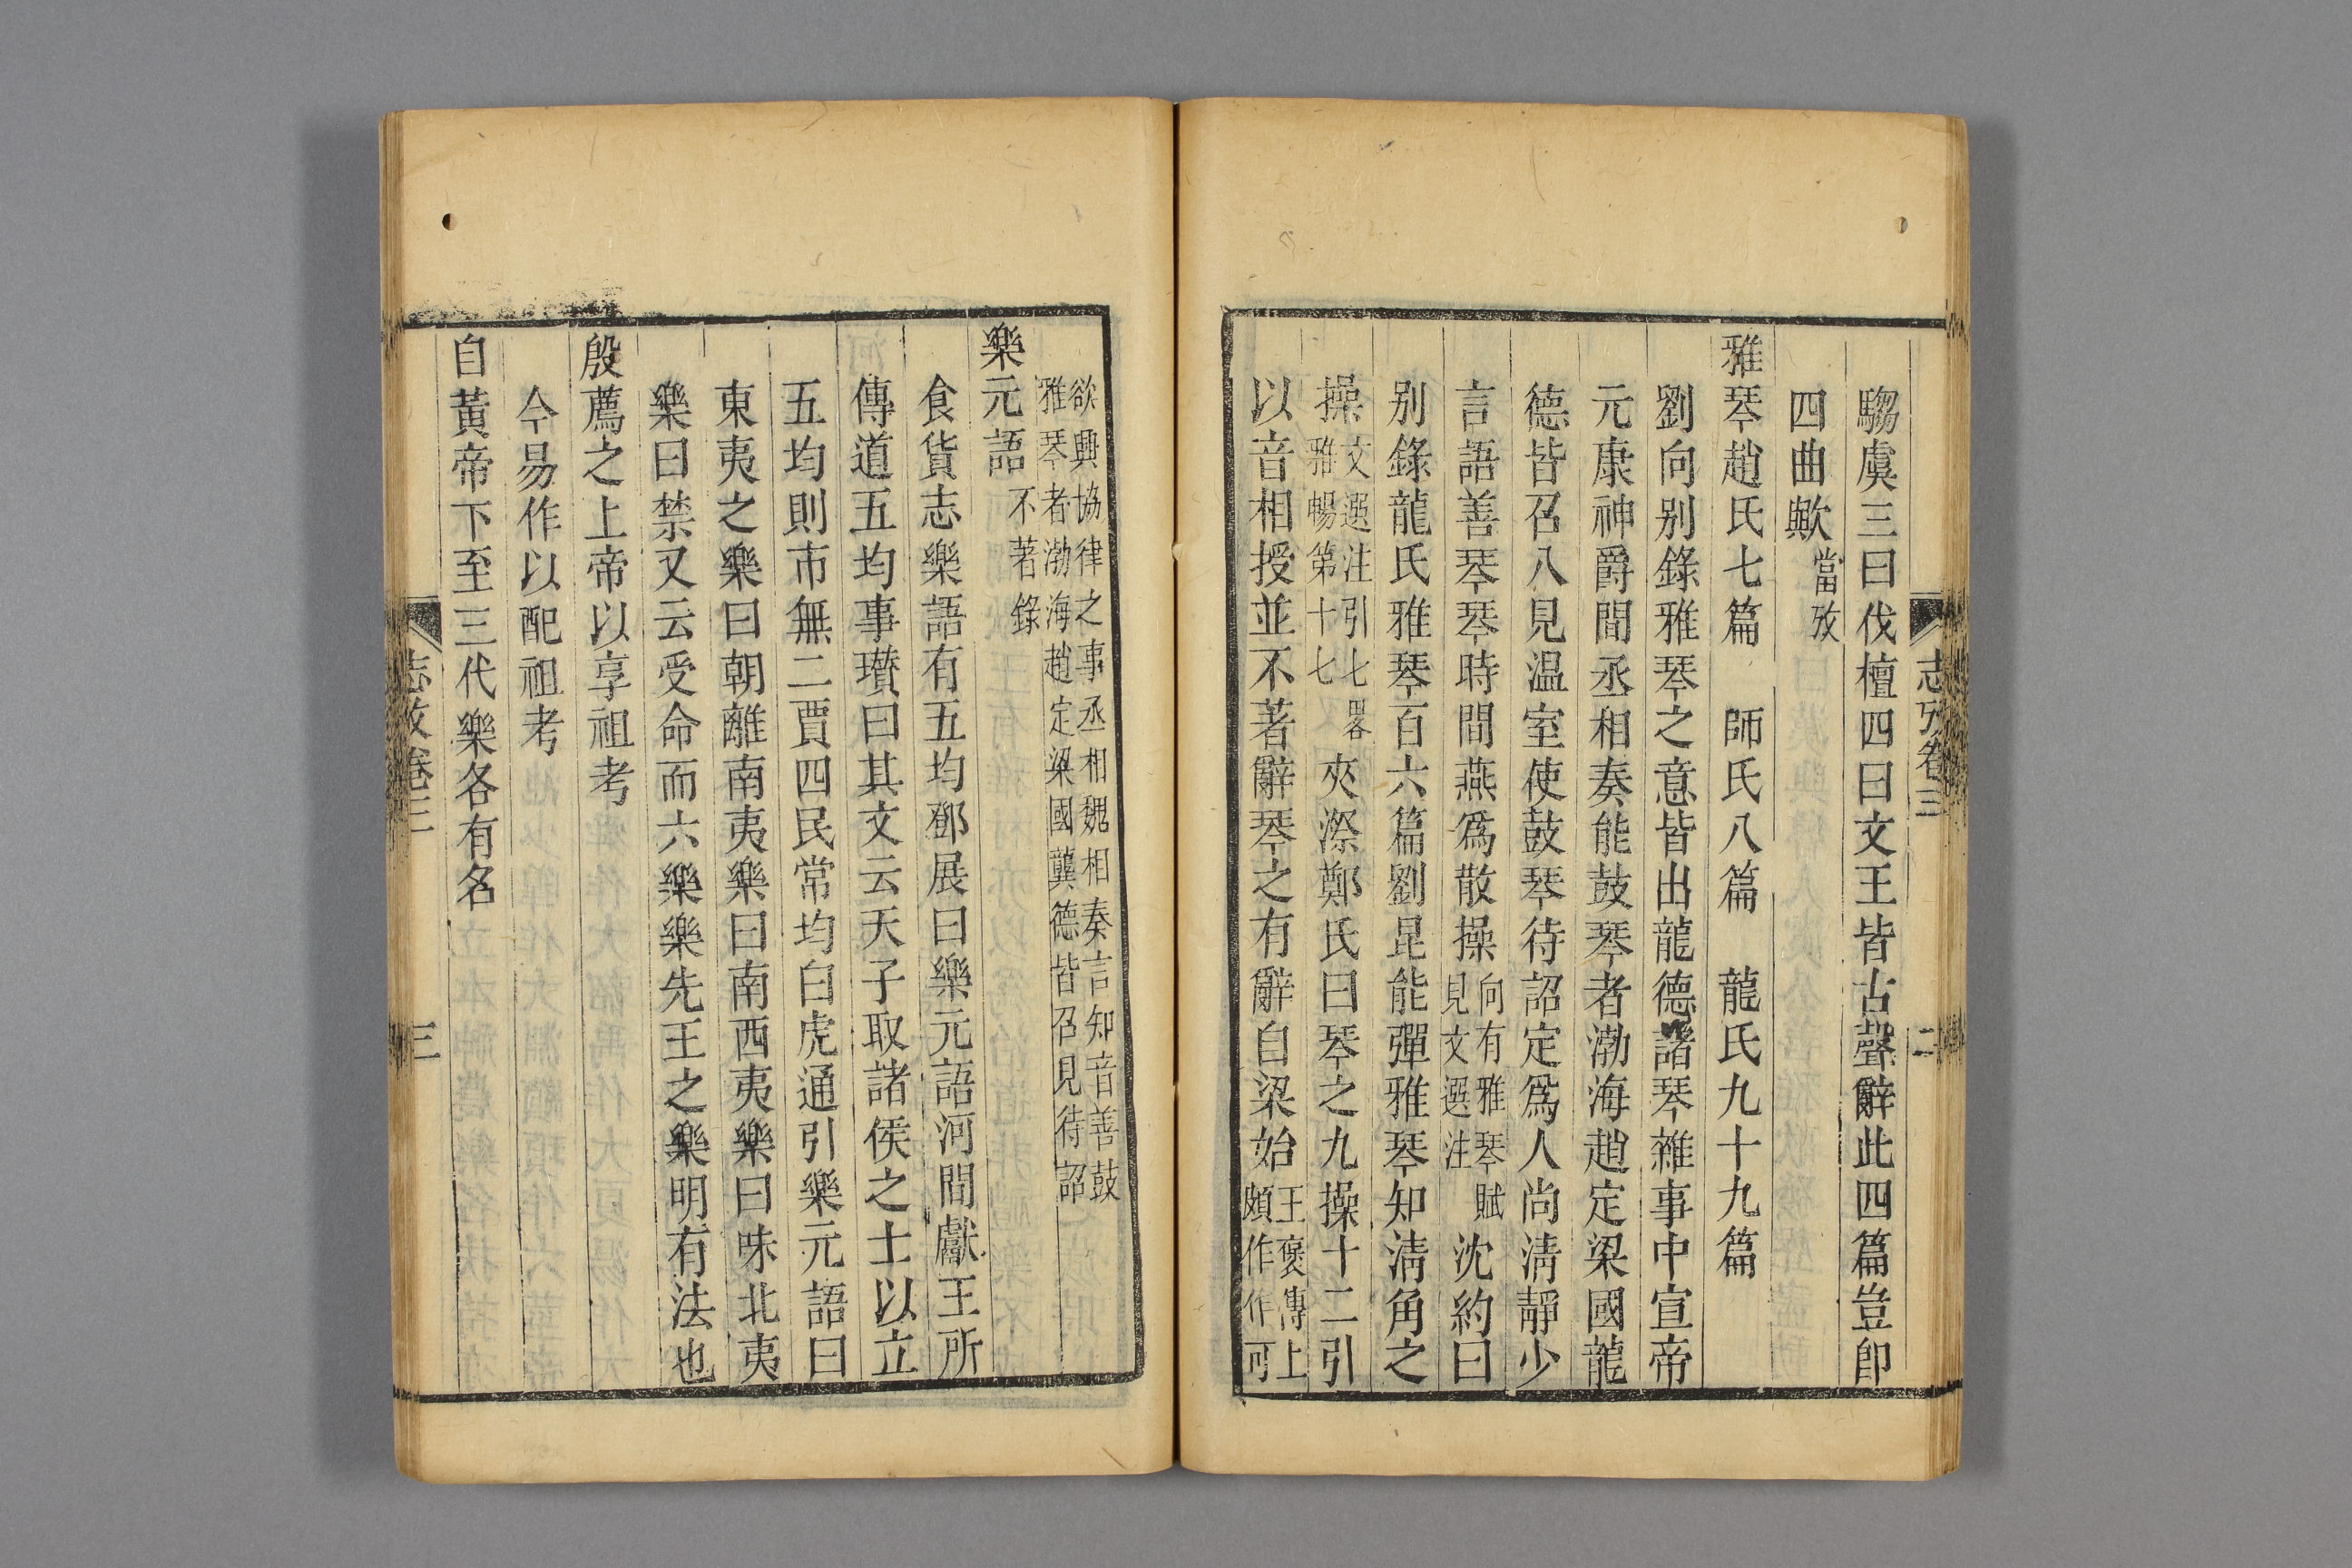 志攷卷三
二
騶虞三曰伐檀四曰文王皆古聲辭此四篇豈卽
四曲歟當攷
雅琴趙氏七篇　師氏八篇　龍氏九十九篇
劉向别錄雅琴之意皆出龍德諸琴雜事中宣帝
元康神爵間丞相奏能鼓琴者渤海趙定梁國龍
德皆召入見温室使鼓琴待詔定爲人尚淸靜少
言語善琴琴時間燕爲散操向有雅琴賦見文選注沈約曰
别錄龍氏雅琴百六篇劉昆能彈雅琴知淸角之
操文選注引七畧雅暢第十七夾漈鄭氏曰琴之九操十二引
以音相授並不著辭琴之有辭自梁始王褒傳上頗作作可
欲興協律之事丞相魏相奏言知音善鼓
雅琴者渤海趙定梁國龔德皆召見待詔
樂元語不著錄
食貨志樂語有五均鄧展曰樂元語河間獻王所
傳道五均事瓚曰其文云天子取諸侯之士以立
五均則市無二賈四民常均白虎通引樂元語曰
東夷之樂曰朝離南夷樂曰南西夷樂曰昧北夷
樂曰禁又云受命而六樂樂先王之樂明有法也
殷薦之上帝以享祖考
今易作以配祖考
自黃帝下至三代樂各有名
志攷卷三
三